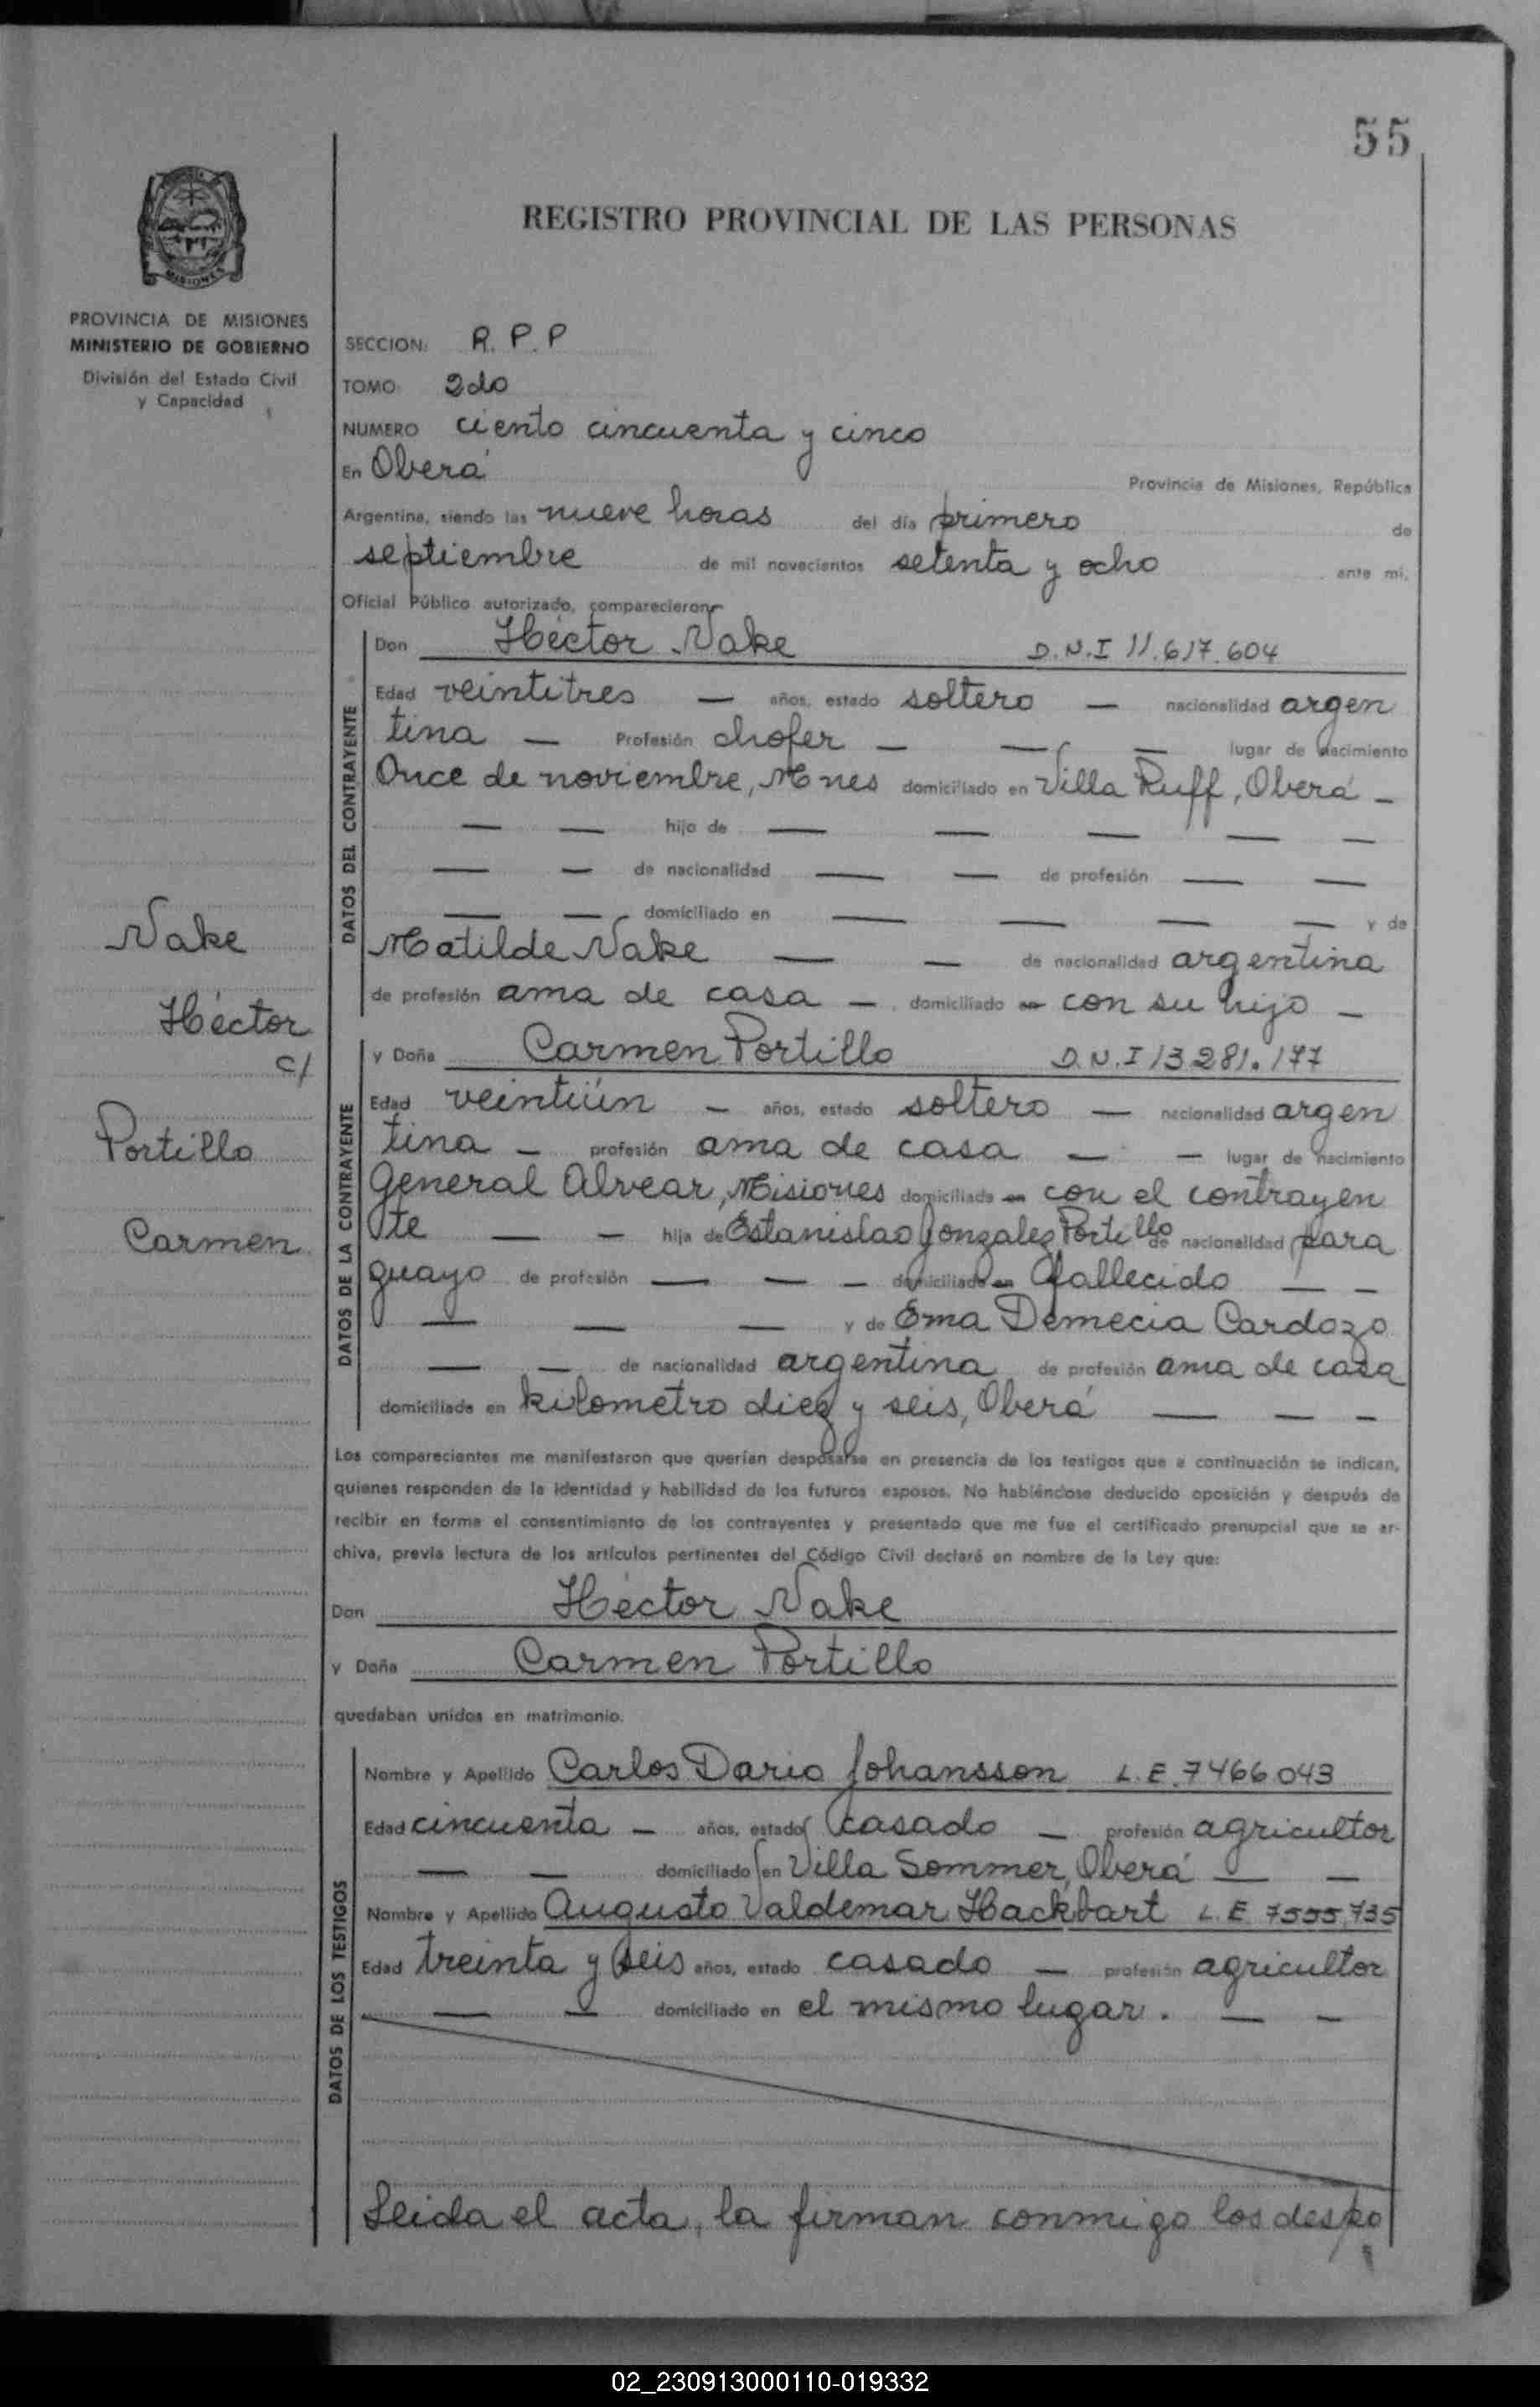 55
REGISTRO PROVINCIAL DE LAS PERSONAS
MISIONES
PROVINCIA DE MISIONES
MINISTERIO DE GOBIERNO
División del Estado Civil
y Capacidad
SECCION: R. P. P
TOMO 2do
NUMERO ciento cincuenta y cinco
En Oberá Provincia de Misiones, República
Argentina, siendo las nueve horas del día primero de
septiembre de mil novecientos setenta y ocho ante mi,
Oficial Público autorizado, comparecieron
DATOS DEL CONTRAYENTE
Don Héctor Nake D.N.I 11.617.604
Edad veintitres — años, estado soltero — nacionalidad argen
tina — Profesión chofer — — — lugar de nacimiento
Once de noviembre, Mnes domiciliado en Villa Ruff, Oberá —
— — hijo de — — — — —
— — de nacionalidad — — de profesión — —
— — domiciliado en — — — — y de
Matilde Nake — — de nacionalidad argentina
de profesión ama de casa — domiciliado en con su hijo —
Nake
Héctor
c/
Portillo
Carmen
DATOS DE LA CONTRAYENTE
y Doña Carmen Portillo D.N.I 13281.177
Edad veintiún — años, estado soltero — nacionalidad argen
tina — profesión ama de casa — — lugar de nacimiento
General Alvear, Misiones domiciliada en con el contrayen
te — — hija de Estanislao Gonzalez Portillo de nacionalidad para
guayo de profesión — — — domiciliado en fallecido — —
— — — y de Ema Demecia Cardozo
— — de nacionalidad argentina de profesión ama de casa
domiciliada en kilometro diez y seis, Oberá — — —
Los comparecientes me manifestaron que querían desposarse en presencia de los testigos que a continuación se indican,
quienes responden de la identidad y habilidad de los futuros esposos. No habiéndose deducido oposición y después de
recibir en forma el consentimiento de los contrayentes y presentado que me fue el certificado prenupcial que se ar-
chiva, previa lectura de los artículos pertinentes del Código Civil declaré en nombre de la Ley que:
Don Héctor Nake
y Doña Carmen Portillo
quedaban unidos en matrimonio.
DATOS DE LOS TESTIGOS
Nombre y Apellido Carlos Dario Johansson L.E. 7466.043
Edad cincuenta — años, estado casado — profesión agricultor
— — domiciliado en Villa Sommer, Oberá — —
Nombre y Apellido Augusto Valdemar Hackbart L.E 7555.735
Edad treinta y seis años, estado casado — profesión agricultor
— — domiciliado en el mismo lugar. — —
Leida el acta, la firman conmigo los despo
02_230913000110-019332